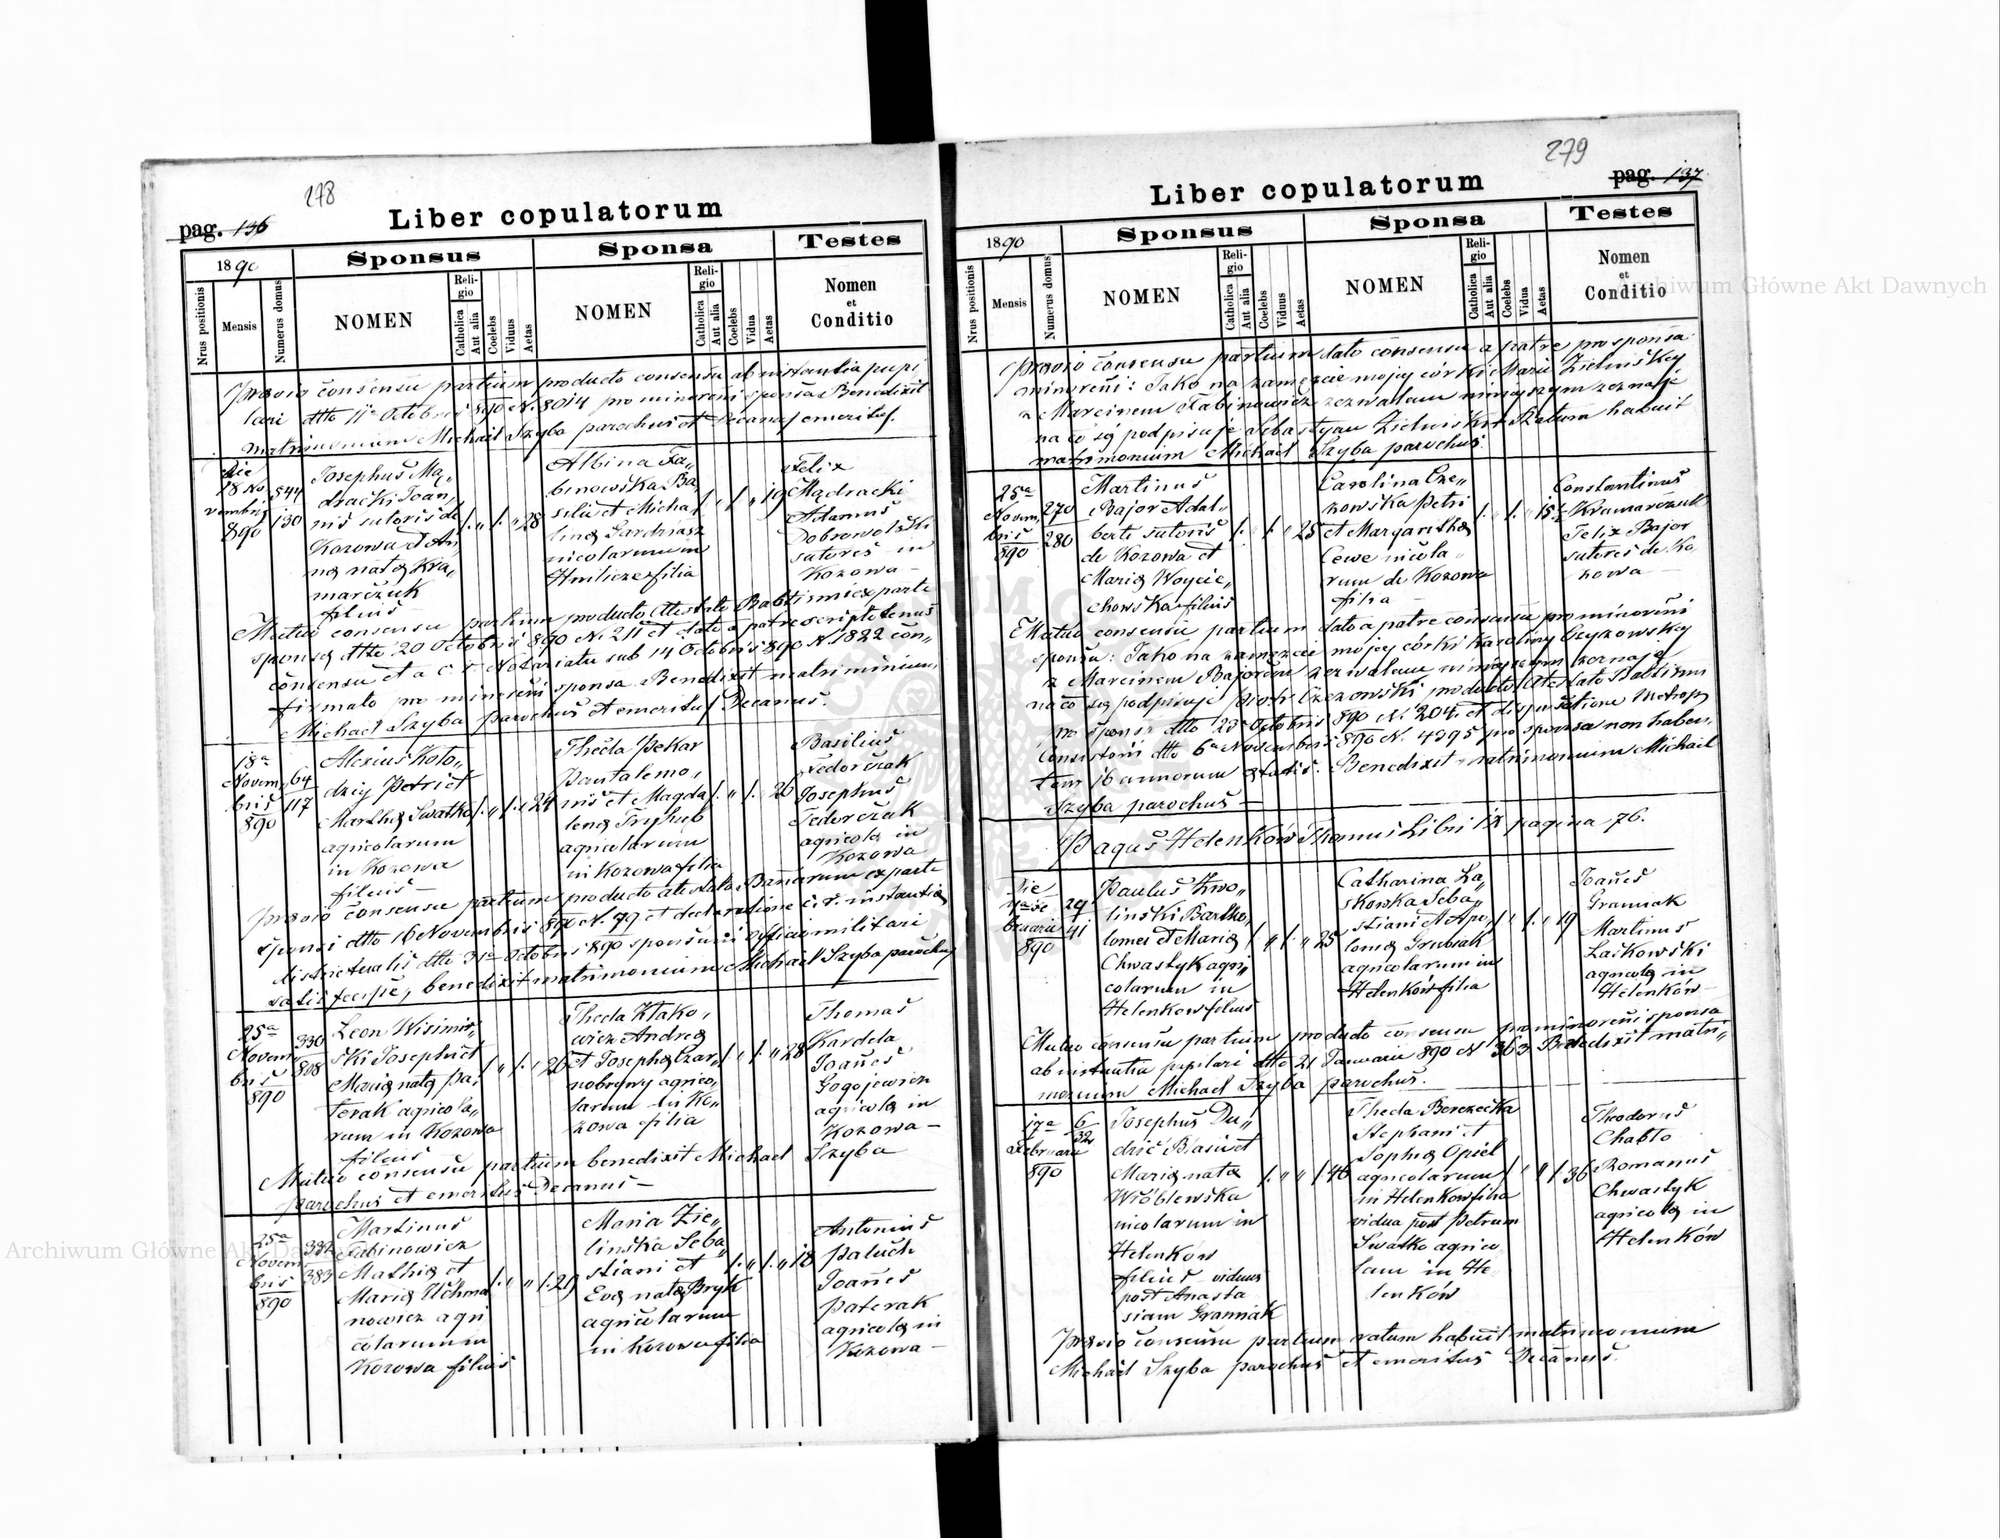 278
pag. 136
Liber copulatorum
1890
Sponsus
Sponsa
Testes
Nrus positionis
Mensis
Numerus domus
NOMEN
Religio
Catholica
Aut alia
Coelebs
Viduus
Aetas
NOMEN
Religio
Catholica
Aut alia
Coelebs
Vidua
Aetas
Nomen
et
Conditio
Praevio consensu partium producto consensu ab instantia pupi
lari dtto 11a Octobris 890 N. 8014 pro minoreni sponsa Benedixit
matrimonium Michael Szyba parochus et Decanus emeritus.
Die
18 No
vembris
890
544
130
Josephus Mą„
dracki Joan„
nis sutoris de
Kozowa et An„
na nata Kra„
marczuk
filius
1 „ 1 „ 28
Albina Fa„
binowska Ba„
silii et Micha
lina
nicolarum in
filia
1 1 „ 19
Felix
Mądracki
Adamus
Dobrowolski
sutores in
Kozowa
Mutuo consensu partium producto Attestato Babtismi ex parte
sponsa dtto 20 Octobris 890 N. 211 et dato a patre scripto tenus
consensu et a c. r. Notariatu sub 14 Octobris 890 N. 1822 con„
firmato pro minoreni sponsa Benedixit matrimonium
Michael Szyba parochus et emeritus Decanus.
18a
Novem
bris
890
64
117
Alexius Koto„
dziej Petri et
Martha Swatko
agricolarum
in Kozowa
filius
1 „ 1 „ 24
Thecla Pekar
Pantalemo„
nis et Magda
lena Tryhub
agricolarum
in Kozowa filia
1 „ 1 „ 20
Basilius
Fedorczak
Josephus
Fedorczak
agricola in
Kozowa
Praevio consensu partium producto atestato Banorum ex parte
sponsi dtto 16 Novembris 890 N. 79 et declaratione c. r. instantia
districtualis dtto 31a Octobris 890 sponsum officio militari
satis fecisse, benedixit matrimonium Michael Szyba parochus
25a
Novem
bris
890
330
808
Leon Wisimir„
ski Josephi et
Maria nata Pa„
terak agricola„
rum in Kozowa
filius
1 „ 1 „ 26
Thecla Klako„
wicz Andrea
et Josepha Czar„
nobrewy agrico„
larum in Ko„
zowa filia
1 1 „ 28
Thomas
Kardela
Joannes
Gogojewicz
agricola in
Kozowa
Mutuo consensu partium benedixit Michael Szyba
parochus et emeritus Decanus
25a
Novem
bris
890
332
383
Martinus
Fabinowicz
Mathia et
Maria
nowicz agri
colarum in
Kozowa filius
1 „ „ 1 29
Maria Zie„
linska Seba„
stiani et
Eva nata Bryk
agricolarum
in Kozowa filia
1 „ 1 „ 18
Antonius
Paluch
Joannes
Paterak
agricola in
Kozowa
279
pag. 137
Liber copulatorum
1890
Sponsus
Sponsa
Testes
Nrus positionis
Mensis
Numerus domus
NOMEN
Religio
Catholica
Aut alia
Coelebs
Viduus
Aetas
NOMEN
Religio
Catholica
Aut alia
Coelebs
Vidua
Aetas
Nomen
et
Conditio
Praevio consensu partium dato consensu a patre pro sponsa
minoreni: Jako na zamęzcie mojey córki Marii Zielinskey
z Marcinem Fabinowicz zezwalam niniejszym zeznaję
na co się podpisuje Sebastyan Zielinski Ratum habuit
matrimonium Michael Szyba parochus.
25a
Novem
bris
890
270
280
Martinus
Bajor Adal„
berti sutoris
de Kozowa et
Maria Woycie„
chowska filius
1 „ 1 „ 25
Carolina Cze„
kowska Petri
et Margaritha
Cewe nicola„
rum de Kozowa
filia
1 „ 1 „ 15
Constantinus
Kramarczuk
Felix Bajor
sutores de Ko
zowa
Mutuo consensu partium dato a patre consensu pro minoreni
sponsa: Jako na zamęzcie mojey córki Karoliny Czyzowskey
z Marcinem Bajorem zezwalam niniejszym zeznaję
na co się podpisuję Piotr Czezowski producto Atestato Babtismi
pro sponsa dtto 23a Octobris 890 N. 204. et dispensatione Metrop.
Consistorii dtto 6a Novembris 890 N. 4295 pro sponsa non haben„
tem 16 annorum aetatis. Benedixit matrimonium Michael
Szyba parochus
Pagus Helenków Thomus Libri IX pagina 76.
Die
bruarii
890
29
41
Paulus Kwo„
linski Bartho„
lomei et Maria
Chwastyk agri„
colarum in
Helenkow filius
1 „ 1 „ 25
Catharina La„
skowska Seba„
stiani et Apo„
lonia Grubiak
agricolarum in
Helenków filia
1 „ 1 „ 19
Joannes
Graniak
Martinus
Laskowski
agricola in
Helenków
Mutuo consensu partium producto consensu pro minoreni sponsa
ab instantia pupilari dtto 21 Januarii 890 N 363 Benedixit matri„
monium Michael Szyba parochus.
17a
Februarii
890
6
32
Josephus Du„
dzic Blasii et
Maria nata
Wróblewska
nicolarum in
Helenków
filius viduus
post Anasta
siam Graniak
1 „ „ 1 46
Thecla Berezecka
Stephani et
Sopha Opiel
agricolarum
in Helenkow filia
vidua post Petrum
Swatko agrico
lam in He
lenków
1 „ „ 1 36
Theodorus
Chabto
Romanus
Chwastyk
agricola in
Helenków
Praevio consensu partium ratum habuit matrimonium
Michael Szyba parochus et emeritus Decanus.
Archiwum Główne Akt Dawnych
Archiwum Główne Akt Dawnych